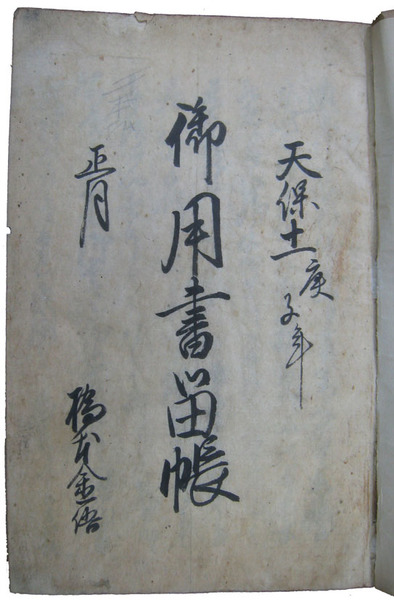 天保十一庚子年
御用書留帳
正月
橋本金